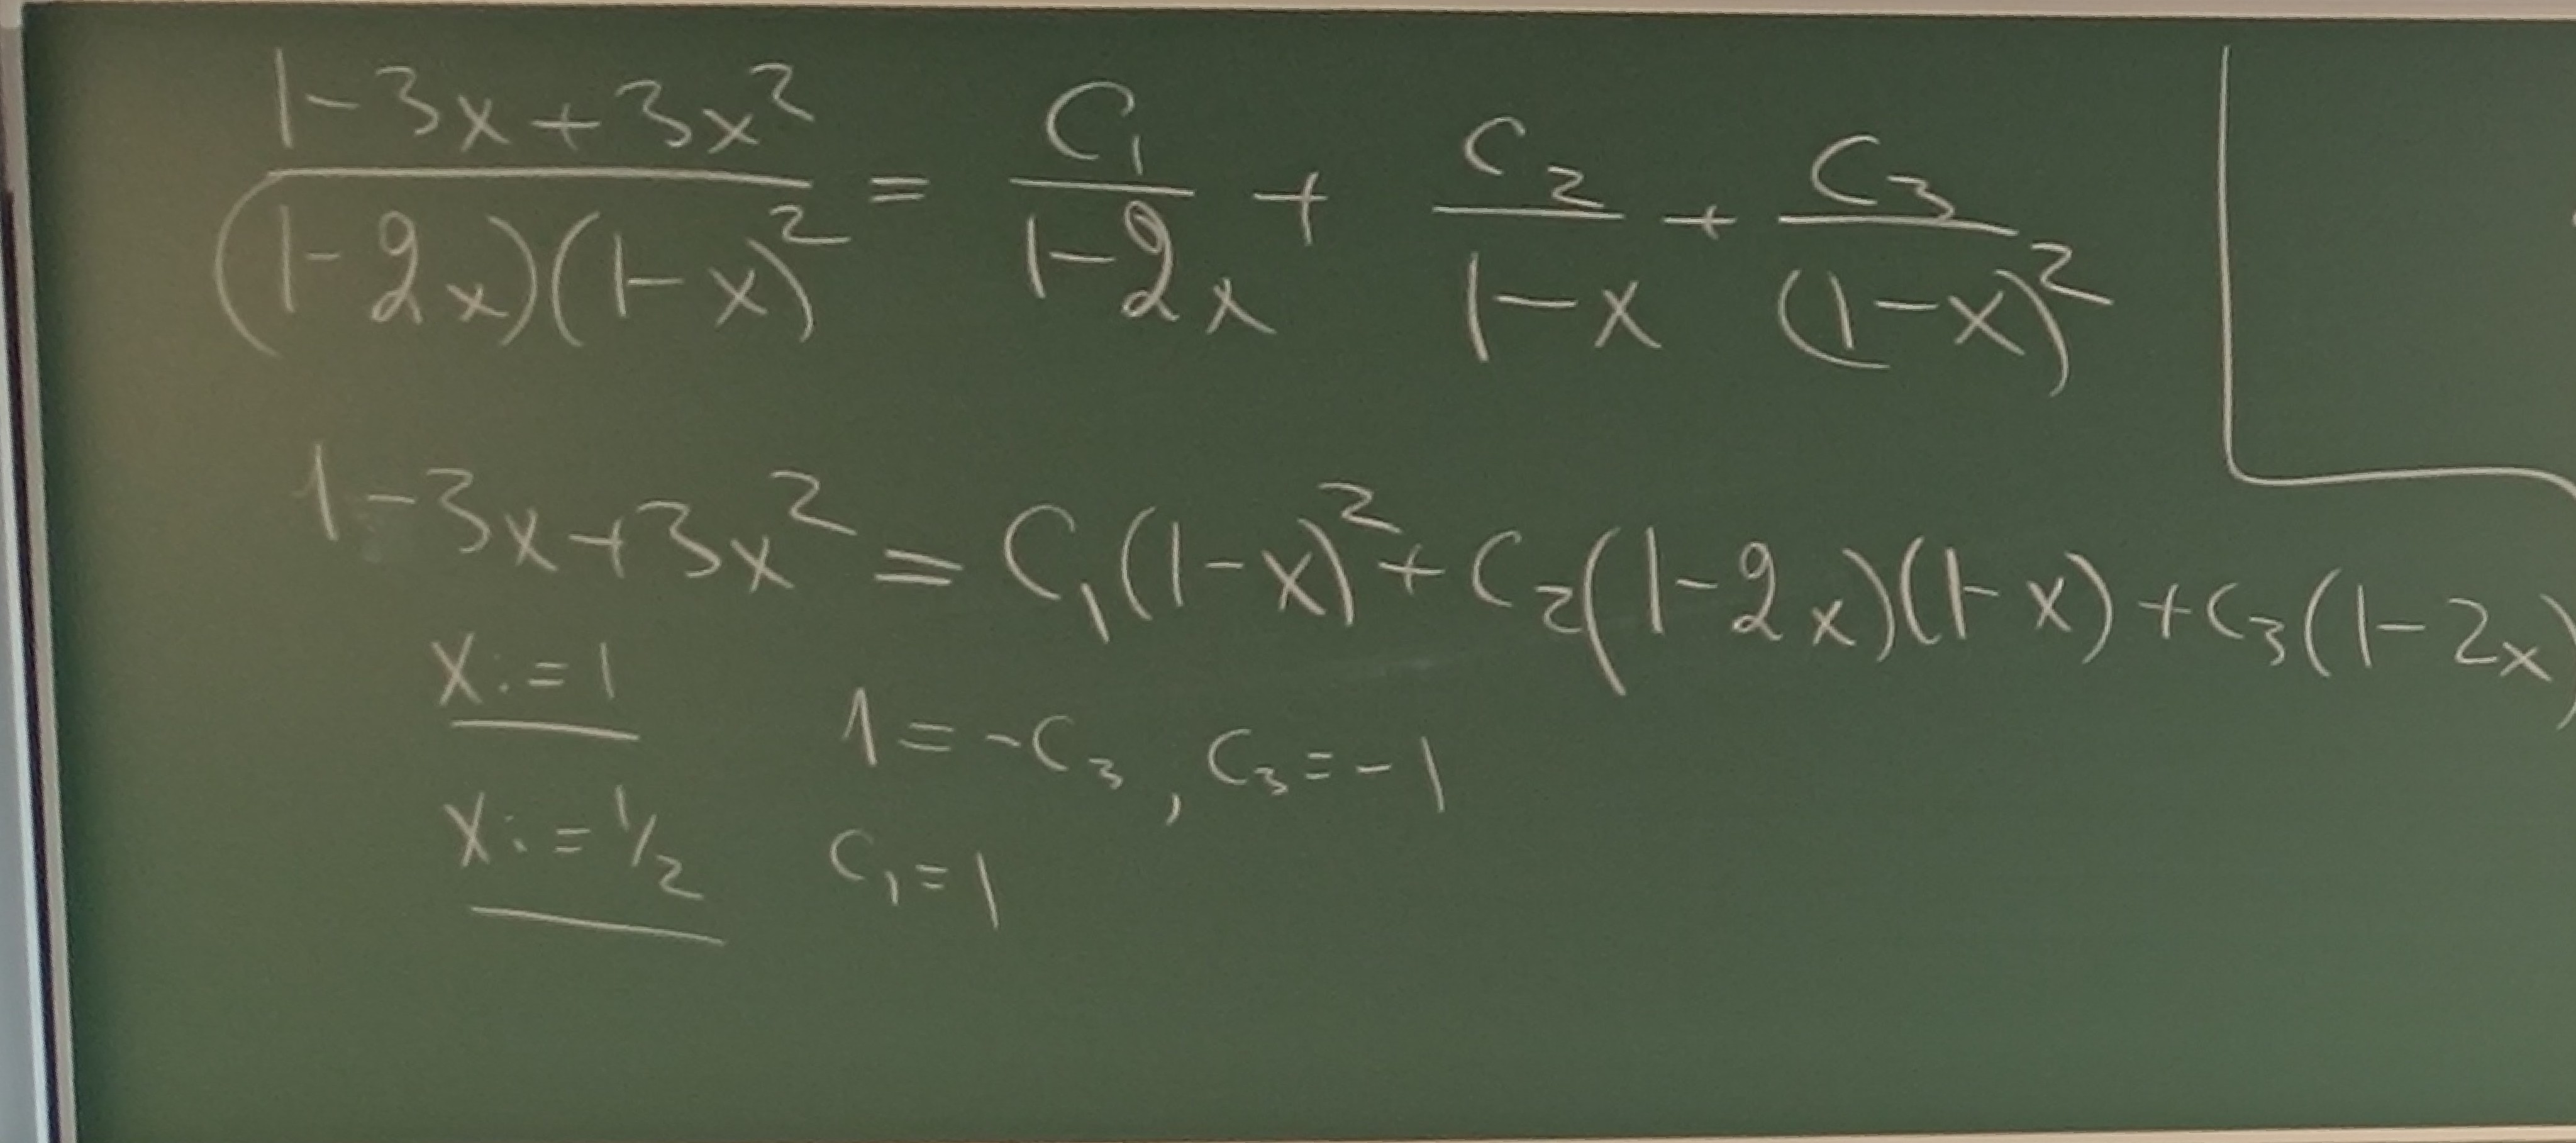 (1-3x+3x²)/((1-2x)(1-x)²) = C₁/(1-2x) + C₂/(1-x) + C₃/(1-x)²
1-3x+3x² = C₁(1-x)² + C₂(1-2x)(1-x) + C₃(1-2x)
x:=1 1=-C₃, C₃=-1
x:=1/2 C₁=1